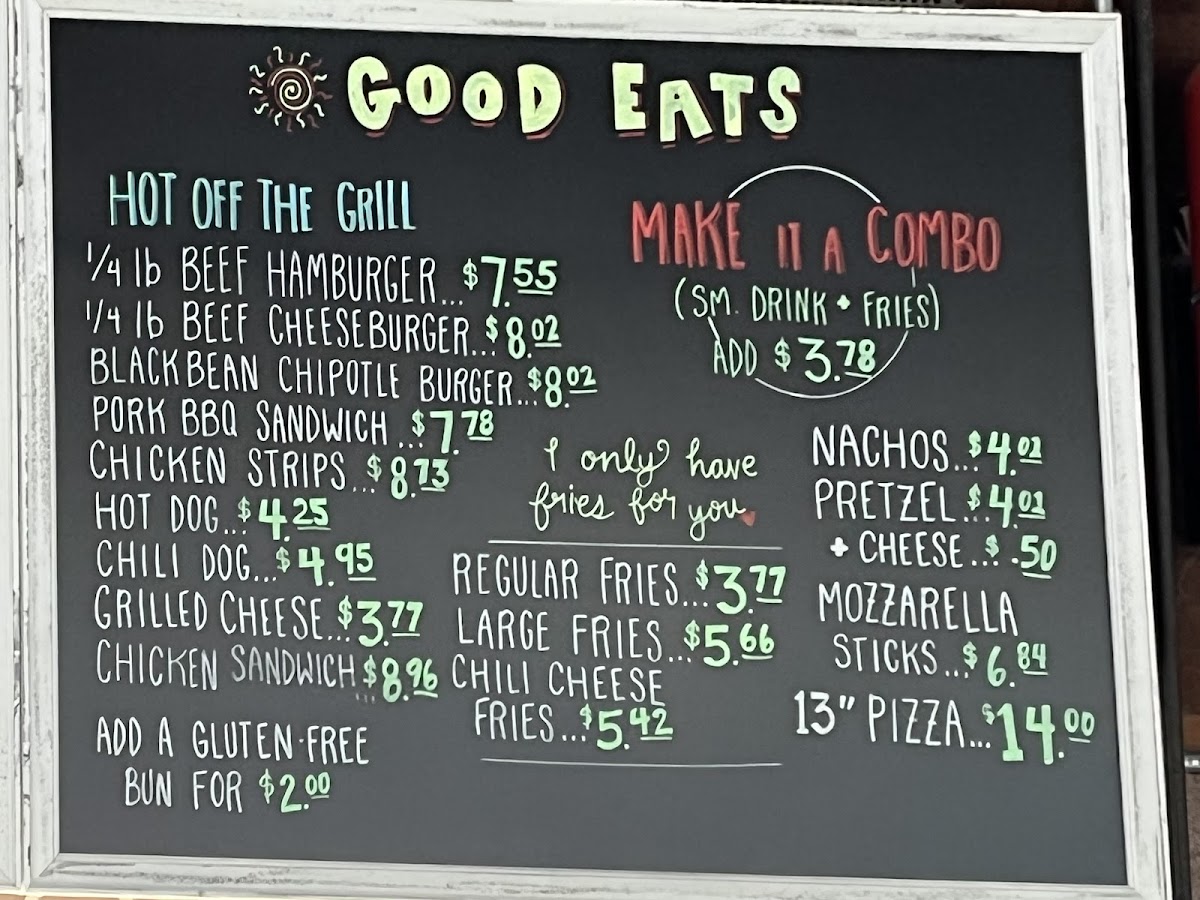 GOOD EATS
HOT OFF THE GRILL
1/4 lb BEEF HAMBURGER...$7.55
1/4 lb BEEF CHEESEBURGER...$8.02
BLACKBEAN CHIPOTLE BURGER...$8.02
PORK BBQ SANDWICH...$7.78
CHICKEN STRIPS...$8.73
HOT DOG...$4.25
CHILI DOG...$4.95
GRILLED CHEESE...$3.77
CHICKEN SANDWICH...$8.96
ADD A GLUTEN-FREE
BUN FOR $2.00
I only have
fries for you
REGULAR FRIES...$3.77
LARGE FRIES...$5.66
CHILI CHEESE
FRIES...$5.42
MAKE IT A COMBO
(SM. DRINK + FRIES)
ADD $3.78
NACHOS...$4.02
PRETZEL...$4.02
+ CHEESE...$.50
MOZZARELLA
STICKS...$6.84
13" PIZZA...$14.00